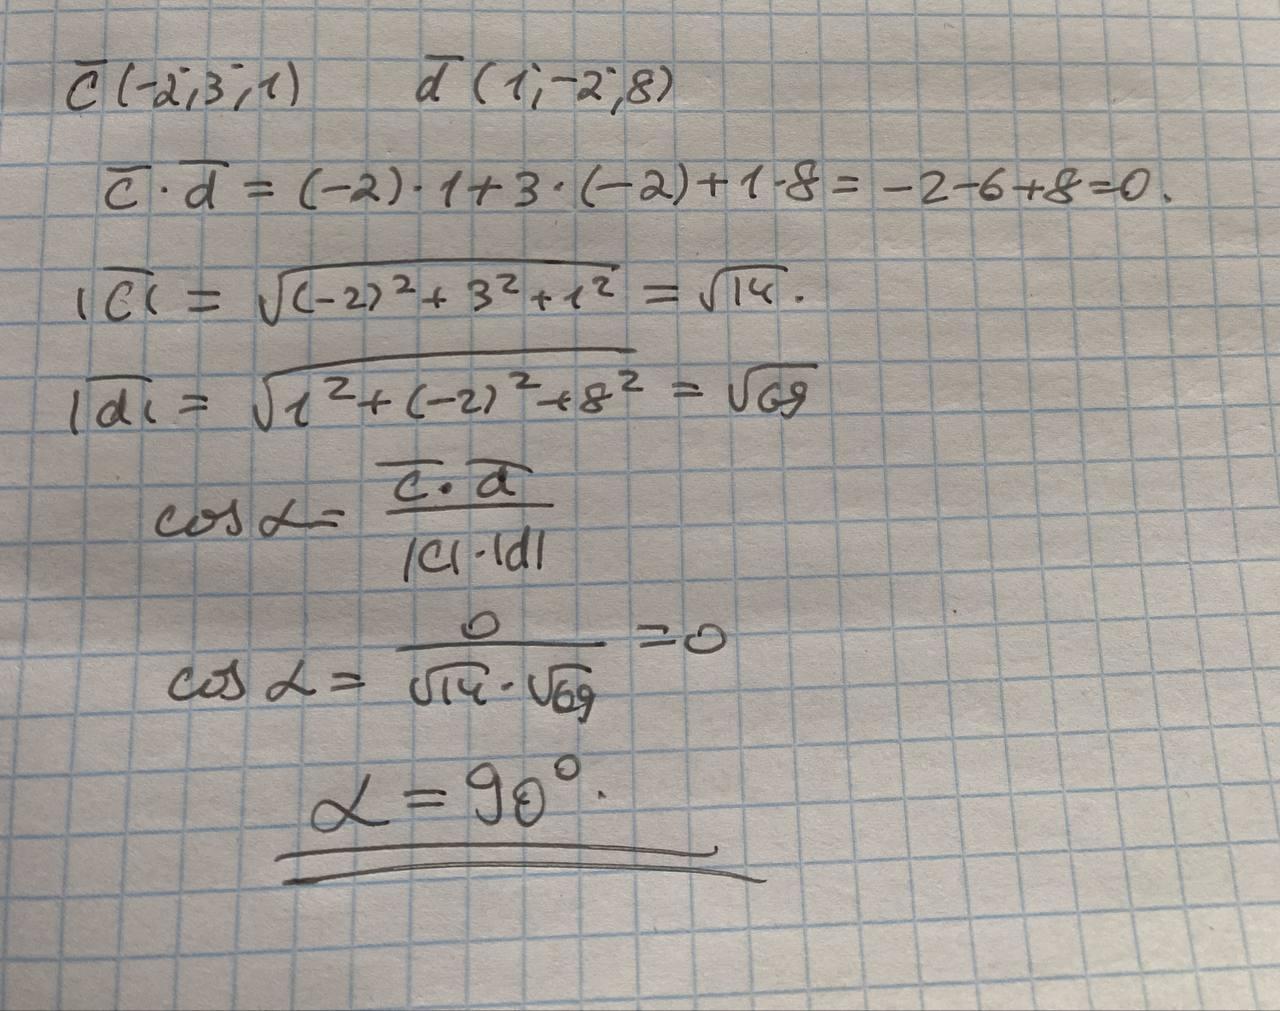 c̅ (-2; 3; 1) d̅ (1; -2; 8)
c̅ · d̅ = (-2) · 1 + 3 · (-2) + 1 · 8 = -2 - 6 + 8 = 0.
|c̅| = √((-2)² + 3² + 1²) = √14.
|d̅| = √(1² + (-2)² + 8²) = √69
cos α = (c̅ · d̅) / (|c| · |d|)
cos α = 0 / (√14 · √69) = 0
α = 90°.